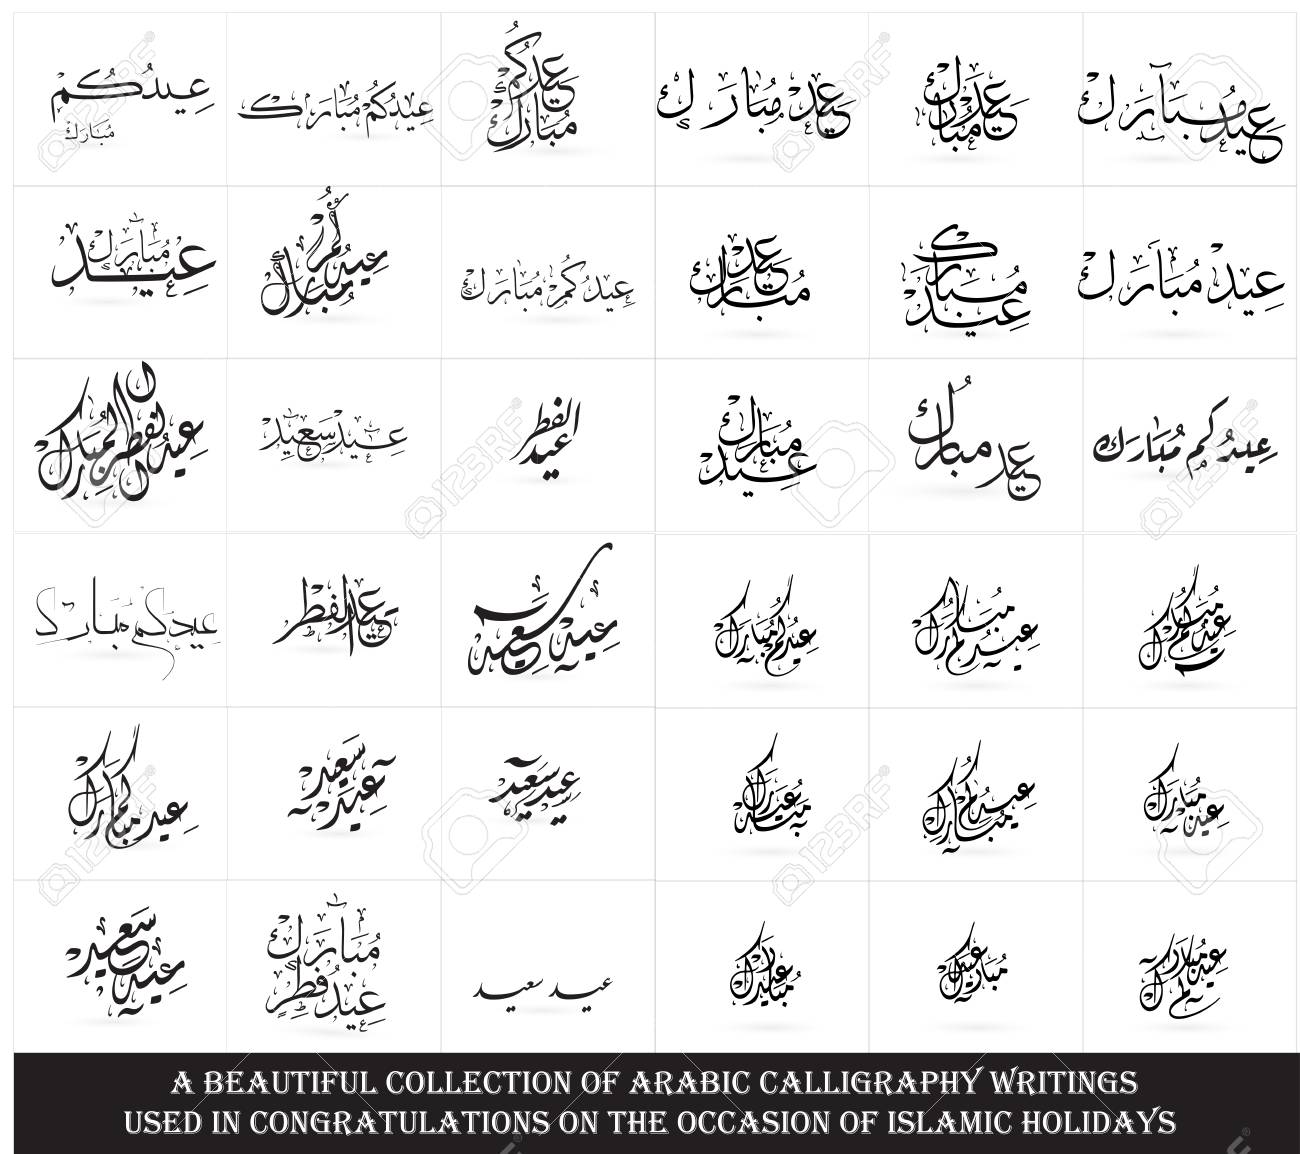 عيدكم مبارك
عيدكم مبارك
عيدكم مبارك
عيد مبارك
عيد مبارك
عيد مبارك
عيد مبارك
عيدكم مبارك
عيدكم مبارك
عيد مبارك
عيد مبارك
عيد مبارك
عيد الفطر المبارك
عيد سعيد
عيد الفطر
عيد مبارك
عيد مبارك
عيدكم مبارك
عيدكم مبارك
عيد الفطر
عيد سعيد
عيدكم مبارك
عيدكم مبارك
عيدكم مبارك
عيدكم مبارك
عيد سعيد
عيد سعيد
عيد مبارك
عيدكم مبارك
عيد مبارك
عيد سعيد
عيد فطر مبارك
عيد سعيد
عيد مبارك
عيد مبارك
عيدكم مبارك
123RF
A BEAUTIFUL COLLECTION OF ARABIC CALLIGRAPHY WRITINGS
USED IN CONGRATULATIONS ON THE OCCASION OF ISLAMIC HOLIDAYS